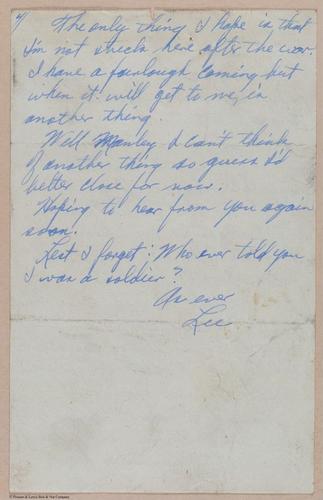 4/
The only thing I hope is that
I'm not stuck here after the war.
I have a fourlough coming but
when it will get to me, is
another thing.
Will Manley I can't think
of another thing so guess I'd
better close for now.
Hoping to hear from you again
soon.
Lest I forget: Who ever told you
I was a soldier?
As ever
Lee